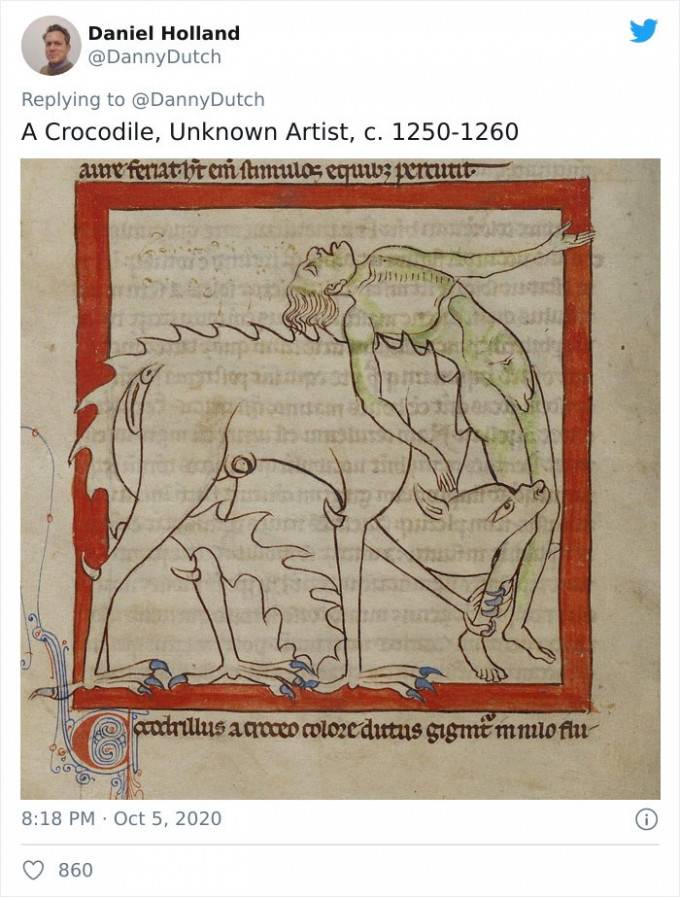 Daniel Holland
@DannyDutch
Replying to @DannyDutch
A Crocodile, Unknown Artist, c. 1250-1260
aure feriat
stimulos equibꝫ percutit
a croceo colore dictus gignit̄ in nilo flu
8:18 PM · Oct 5, 2020
860